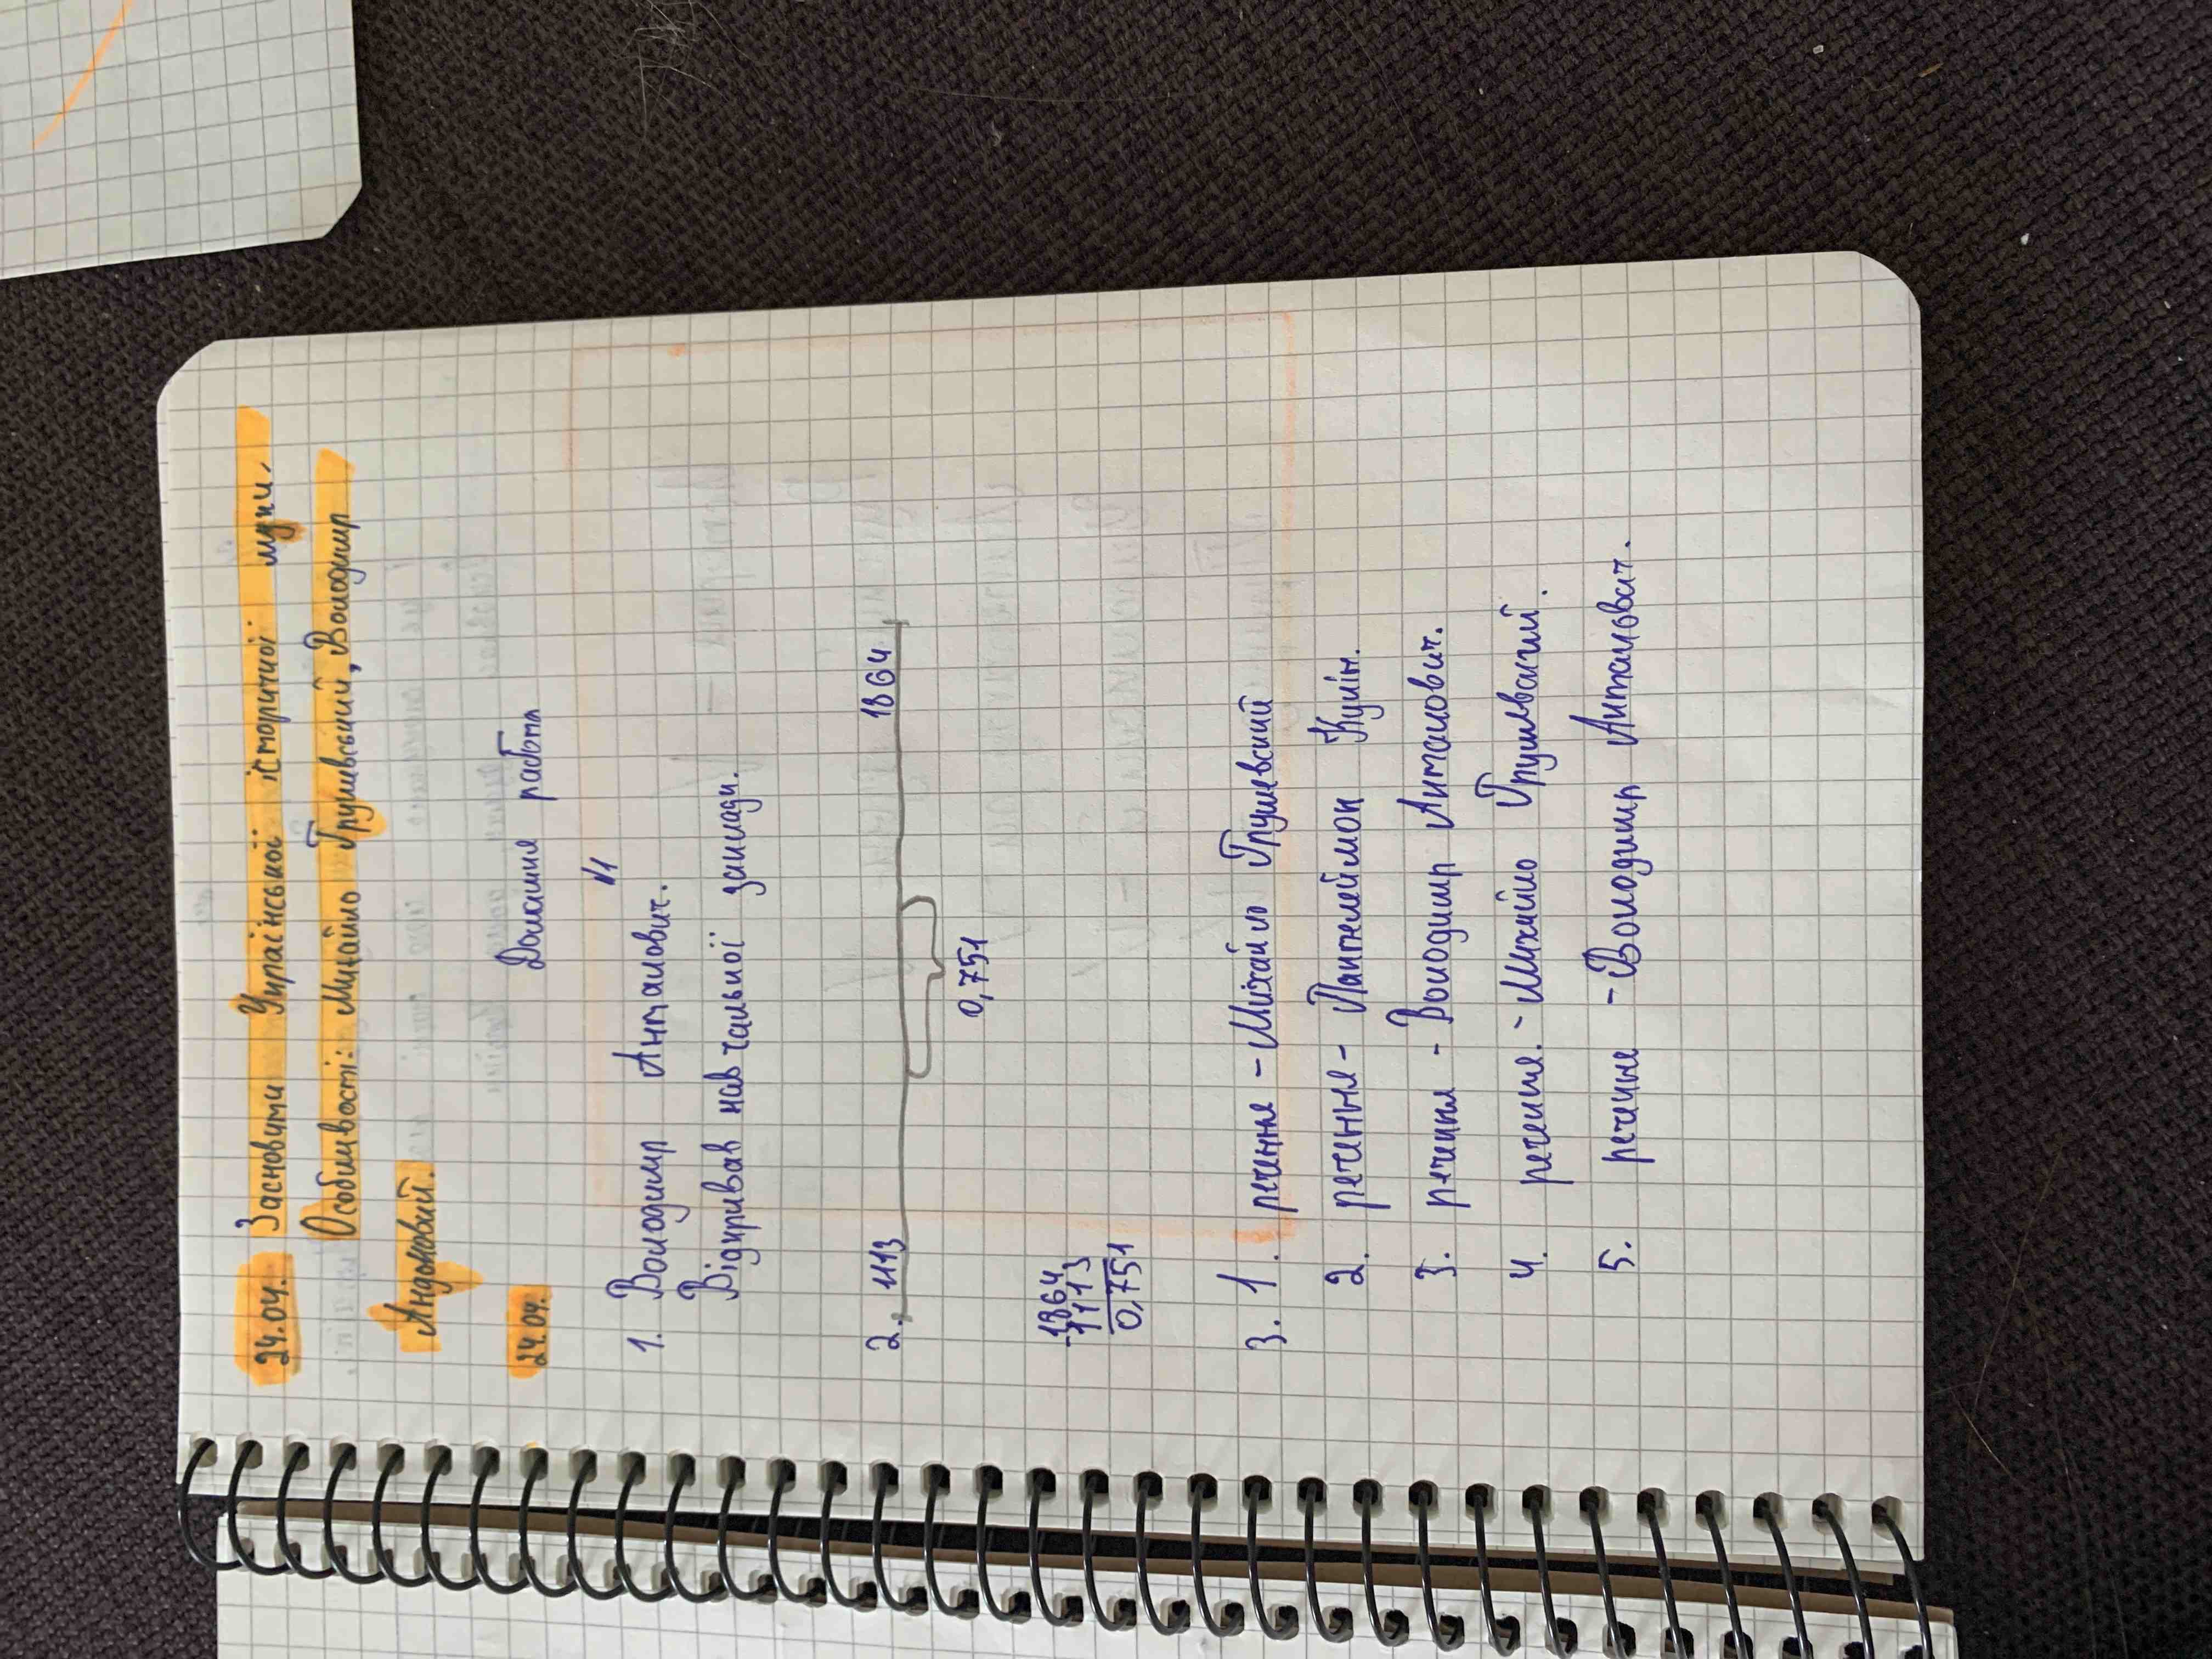 24.04. Засновики Української історичної муки.
Особливості: Михайло Грушевський, Володимир
Андоновий.
24.04. Домашня работа
№1
1. Володимир Антонович.
Відкривав навчальної заклади.
2. 1113 1864
0,751
-1864
1113
0,751
3. 1. речення - Михайло Грушевський
2. речення - Пантелеймон Куліш.
3. речення - Володимир Антонович.
4. речення. - Михайло Грушевський.
5. речення - Володимир Антонович.